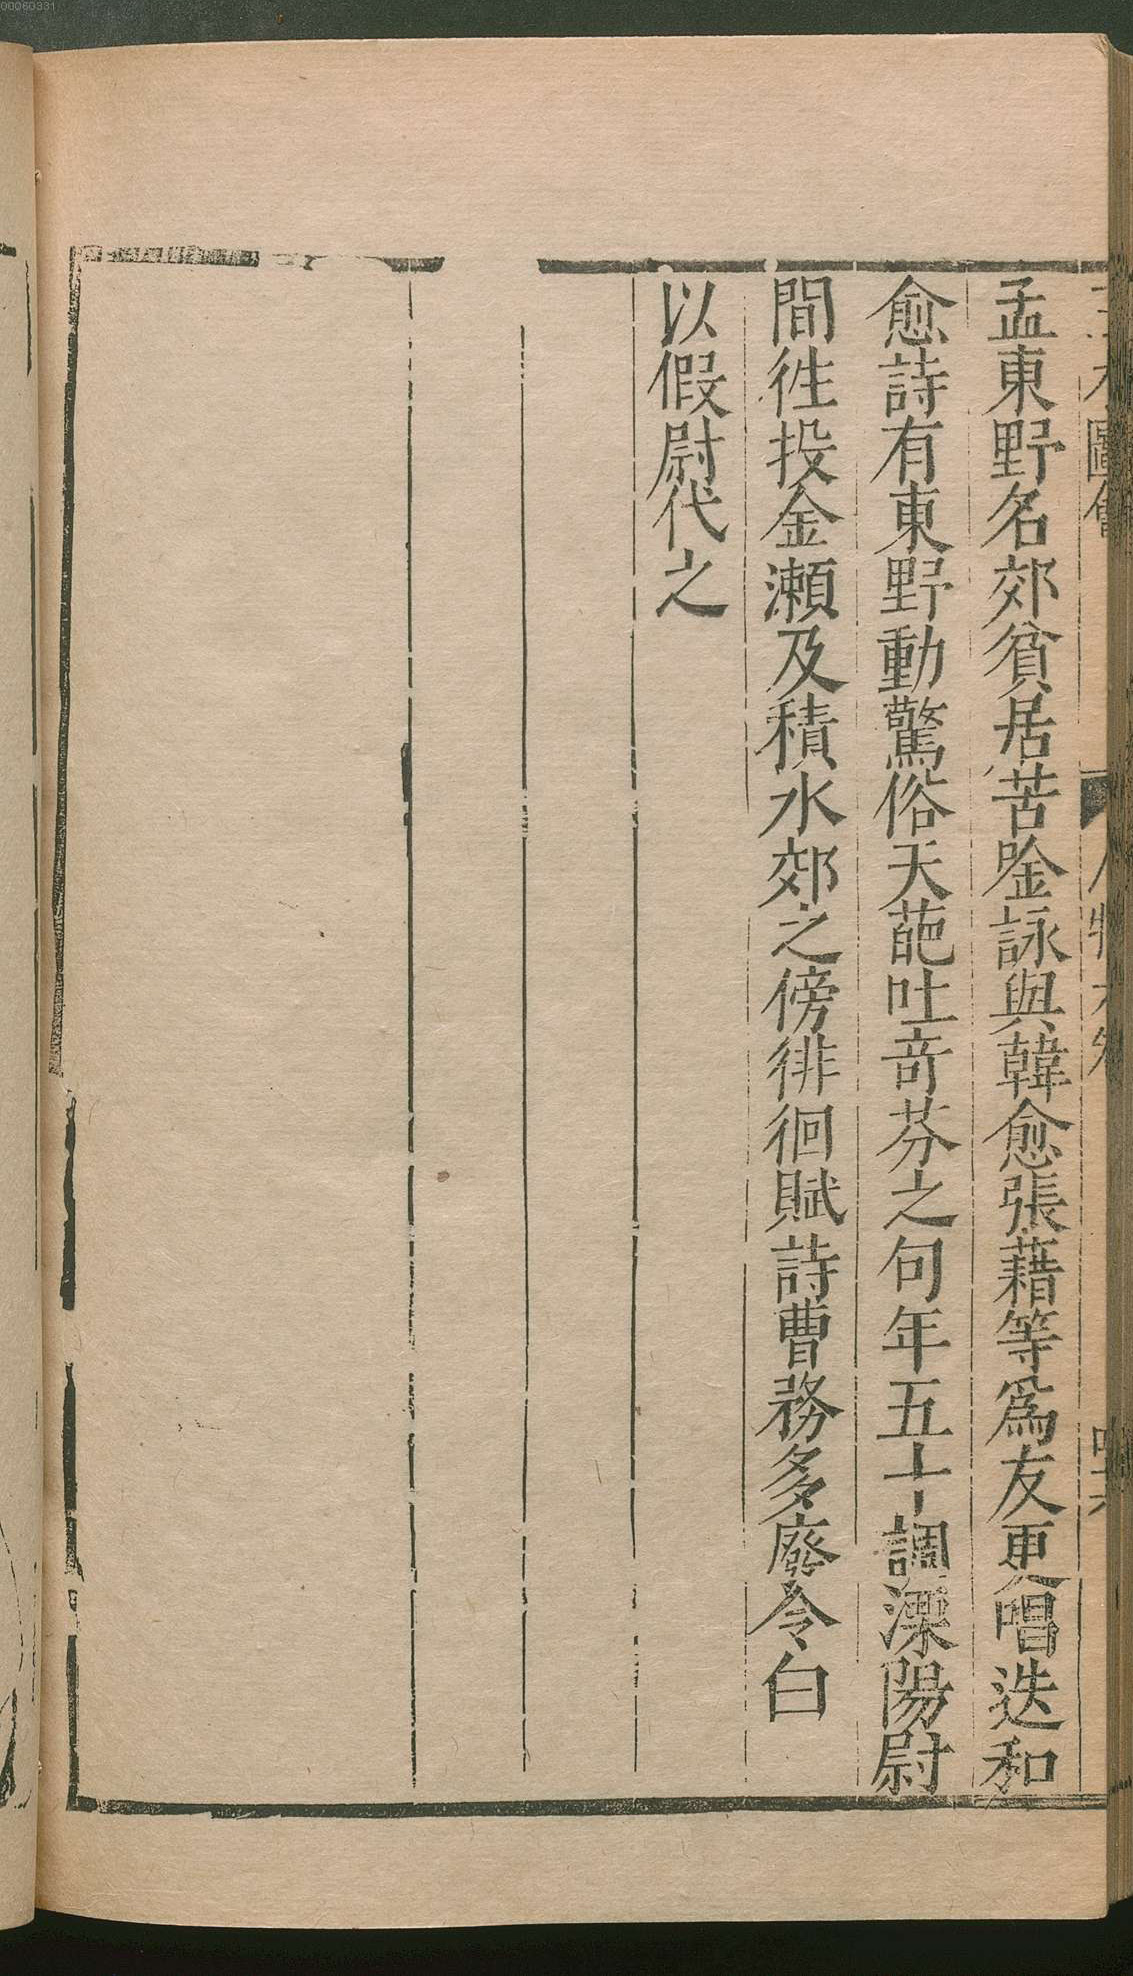 孟東野名郊貧居苦唫詠與韓愈張藉等爲友更唱迭和
愈詩有東野動驚俗天葩吐竒芬之句年五十調溧陽尉
間徃投金瀬及積水郊之傍徘徊賦詩曹務多廢令白
以假尉代之
00060331